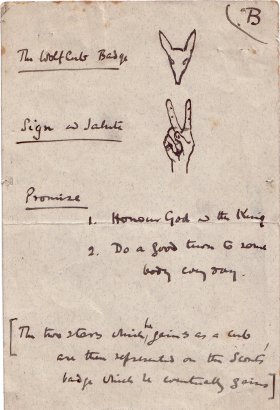 B
The Wolf Cub Badge
Sign & Salute
Promise
1. Honour God & the King
2. Do a good turn to some
body every day.
[The two stars which he gains as a cub,
are then represented on the Scouts
badge which he eventually gains]